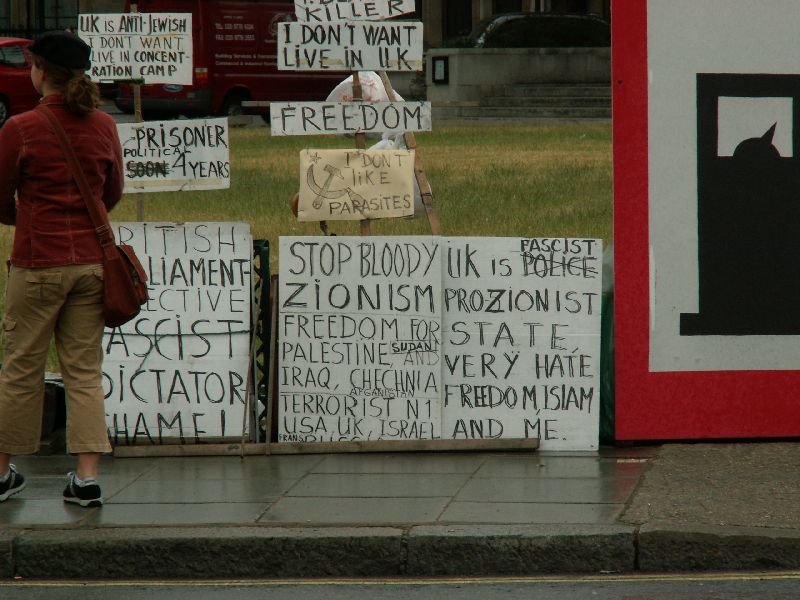 UK is ANTI-JEWISH
I DON'T WANT
LIVE IN CONCENT-
RATION CAMP
KILLER
I DON'T WANT
LIVE IN UK
FREEDOM
PRISONER
POLITICAL
SOON 4 YEARS
I DON'T
LIKE
PARASITES
BRITISH
PARLIAMENT-
FASCIST
DICTATOR
SHAME!
STOP BLOODY
ZIONISM
FREEDOM FOR
PALESTINE, SUDAN AND
IRAQ, CHECHNIA
AFGANISTAN
TERRORIST N1
USA, UK, ISRAEL
FRANS
FASCIST
UK IS POLICE
PROZIONIST
STATE,
VERY HATE
FREEDOM ISLAM
AND ME.